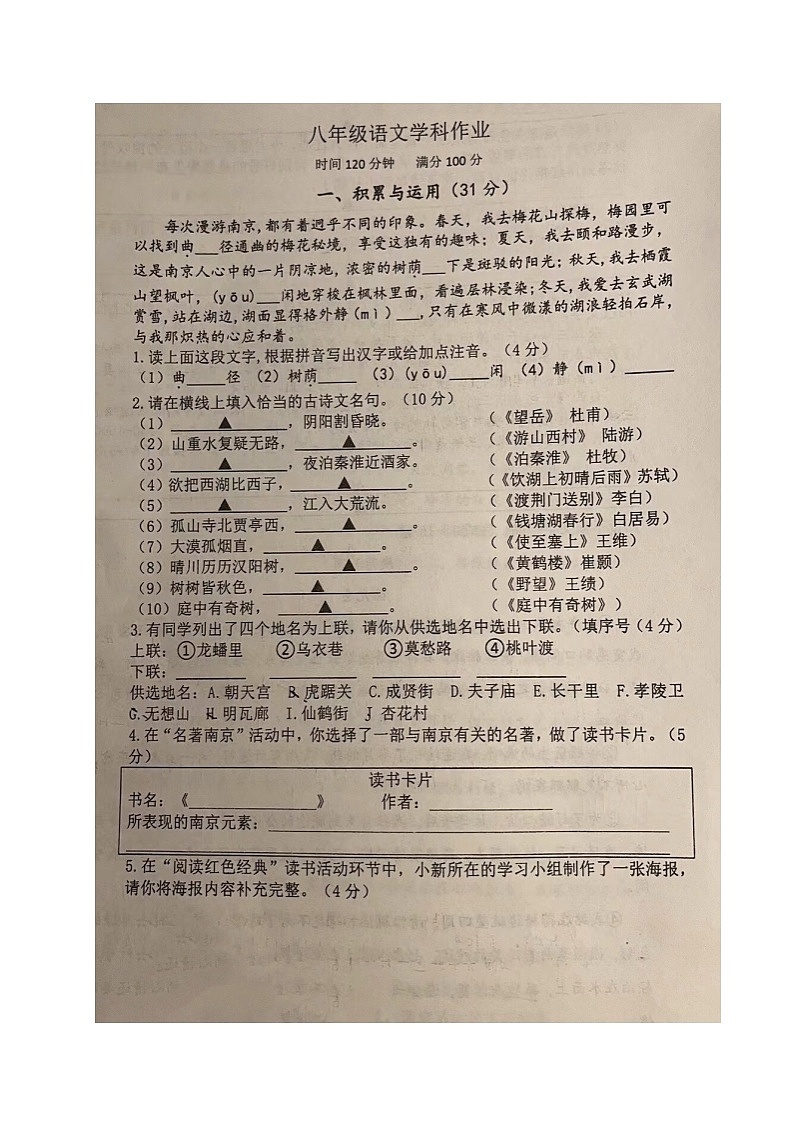 八年级语文学科作业
时间 120 分钟 满分 100 分
一、积累与运用（31 分）
每次漫游南京,都有着迥乎不同的印象。春天，我去梅花山探梅，梅园里可
以找到曲___径通幽的梅花秘境，享受这独有的趣味；夏天，我去颐和路漫步，
这是南京人心中的一片阴凉地，浓密的树荫___下是斑驳的阳光；秋天,我去栖霞
山望枫叶，(yōu)___闲地穿梭在枫林里面，看遍层林浸染;冬天,我爱去玄武湖
赏雪,站在湖边,湖面显得格外静(mì)___,只有在寒风中微漾的湖浪轻拍石岸，
与我那炽热的心应和着。
1.读上面这段文字,根据拼音写出汉字或给加点注音。（4 分）
（1）曲_____径 （2）树荫_____ （3）(yōu)_____闲 （4）静（mì）______
2.请在横线上填入恰当的古诗文名句。（10 分）
（1）______▲______，阴阳割昏晓。 （《望岳》 杜甫）
（2）山重水复疑无路，______▲______。 （《游山西村》 陆游）
（3）______▲______，夜泊秦淮近酒家。 （《泊秦淮》 杜牧）
（4）欲把西湖比西子，______▲______。 （《饮湖上初晴后雨》苏轼）
（5）______▲______，江入大荒流。 （《渡荆门送别》李白）
（6）孤山寺北贾亭西，______▲______。 （《钱塘湖春行》白居易）
（7）大漠孤烟直，______▲______。 （《使至塞上》王维）
（8）晴川历历汉阳树，______▲______。 （《黄鹤楼》崔颢）
（9）树树皆秋色，______▲______。 （《野望》王绩）
（10）庭中有奇树，______▲______。 （《庭中有奇树》）
3.有同学列出了四个地名为上联，请你从供选地名中选出下联。（填序号（4 分）
上联：①龙蟠里 ②乌衣巷 ③莫愁路 ④桃叶渡
下联：________ ________ ________ ________
供选地名：A.朝天宫 B.虎踞关 C.成贤街 D.夫子庙 E.长干里 F.孝陵卫
G.无想山 H.明瓦廊 I.仙鹤街 J 杏花村
4.在“名著南京”活动中，你选择了一部与南京有关的名著，做了读书卡片。（5
分）
读书卡片
书名：《________________》 作者：________________
所表现的南京元素：________________
5.在“阅读红色经典”读书活动环节中，小新所在的学习小组制作了一张海报，
请你将海报内容补充完整。（4 分）